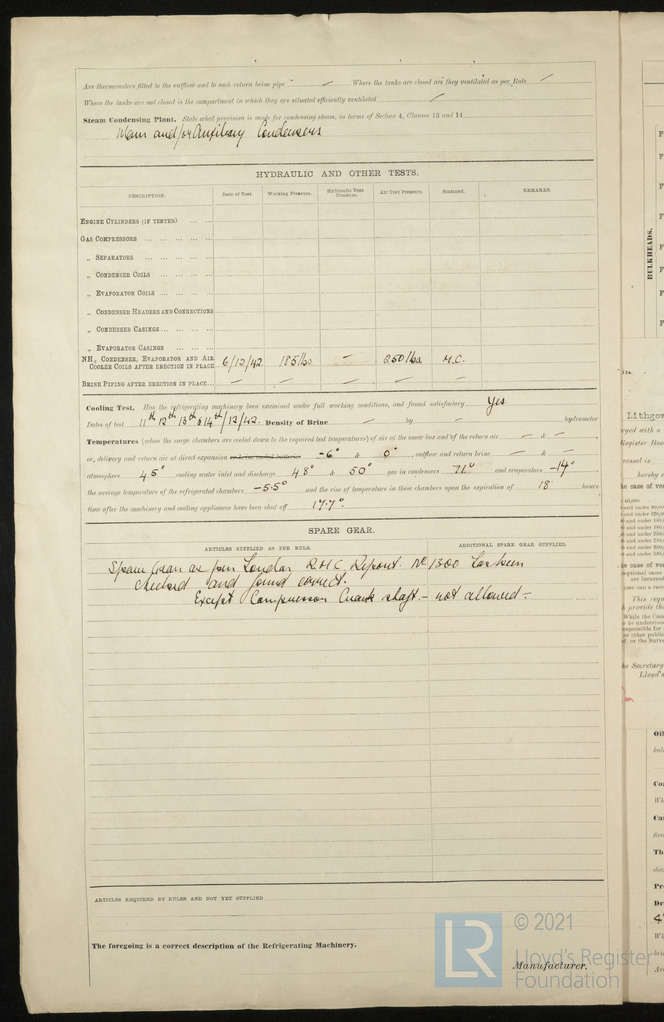 Are thermometers fitted to the outflow and to each return brine pipe — Where the tanks are closed are they ventilated as per Rule —
Where the tanks are not closed is the compartment in which they are situated efficiently ventilated —
Steam Condensing Plant. State what provision is made for condensing steam, in terms of Section 4, Clauses 13 and 14
Main and/or Auxiliary Condensers
HYDRAULIC AND OTHER TESTS.
DESCRIPTION. Date of Test. Working Pressure. Hydraulic Test Pressure. Air Test Pressure. Stamped. REMARKS.
ENGINE CYLINDERS (IF TESTED)
GAS COMPRESSORS
„ SEPARATORS
„ CONDENSER COILS
„ EVAPORATOR COILS
„ CONDENSER HEADERS AND CONNECTIONS
„ CONDENSER CASINGS
„ EVAPORATOR CASINGS
NH3 CONDENSER, EVAPORATOR AND AIR COOLER COILS AFTER ERECTION IN PLACE 6/12/42 185 lbs. — 250 lbs. M.C.
BRINE PIPING AFTER ERECTION IN PLACE — — — — —
Cooling Test. Has the refrigerating machinery been examined under full working conditions, and found satisfactory Yes
Dates of test 11th 12th 13th & 14th/12/42. Density of Brine — by — hydrometer
Temperatures (when the cargo chambers are cooled down to the required test temperatures) of air at the snow box and of the return air — & —
or, delivery and return air at direct expansion -6° & 0°, outflow and return brine — & —
atmosphere 45° cooling water inlet and discharge 48° & 50° gas in condensers 71° and evaporators -14°
the average temperature of the refrigerated chambers -5.5° and the rise of temperature in these chambers upon the expiration of 18 hours
time after the machinery and cooling appliances have been shut off 17.7°.
SPARE GEAR.
ARTICLES SUPPLIED AS PER RULE. ADDITIONAL SPARE GEAR SUPPLIED.
Spare Gear as per London R.M.C. Report. No 1300
checked and found correct.
Except Compressor Crank shaft — not allowed —
ARTICLES REQUIRED BY RULES AND NOT YET SUPPLIED
The foregoing is a correct description of the Refrigerating Machinery.
Manufacturer.
BULKHEADS.
Lithgow
© 2021
LR
Lloyd's Register
Foundation